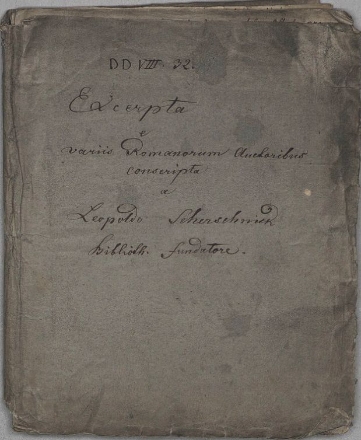 DD VIII 32.
Excerpta
e
variis Romanorum Auctoribus
conscripta
a
Leopoldo Scherschnick
biblioth. fundatore.